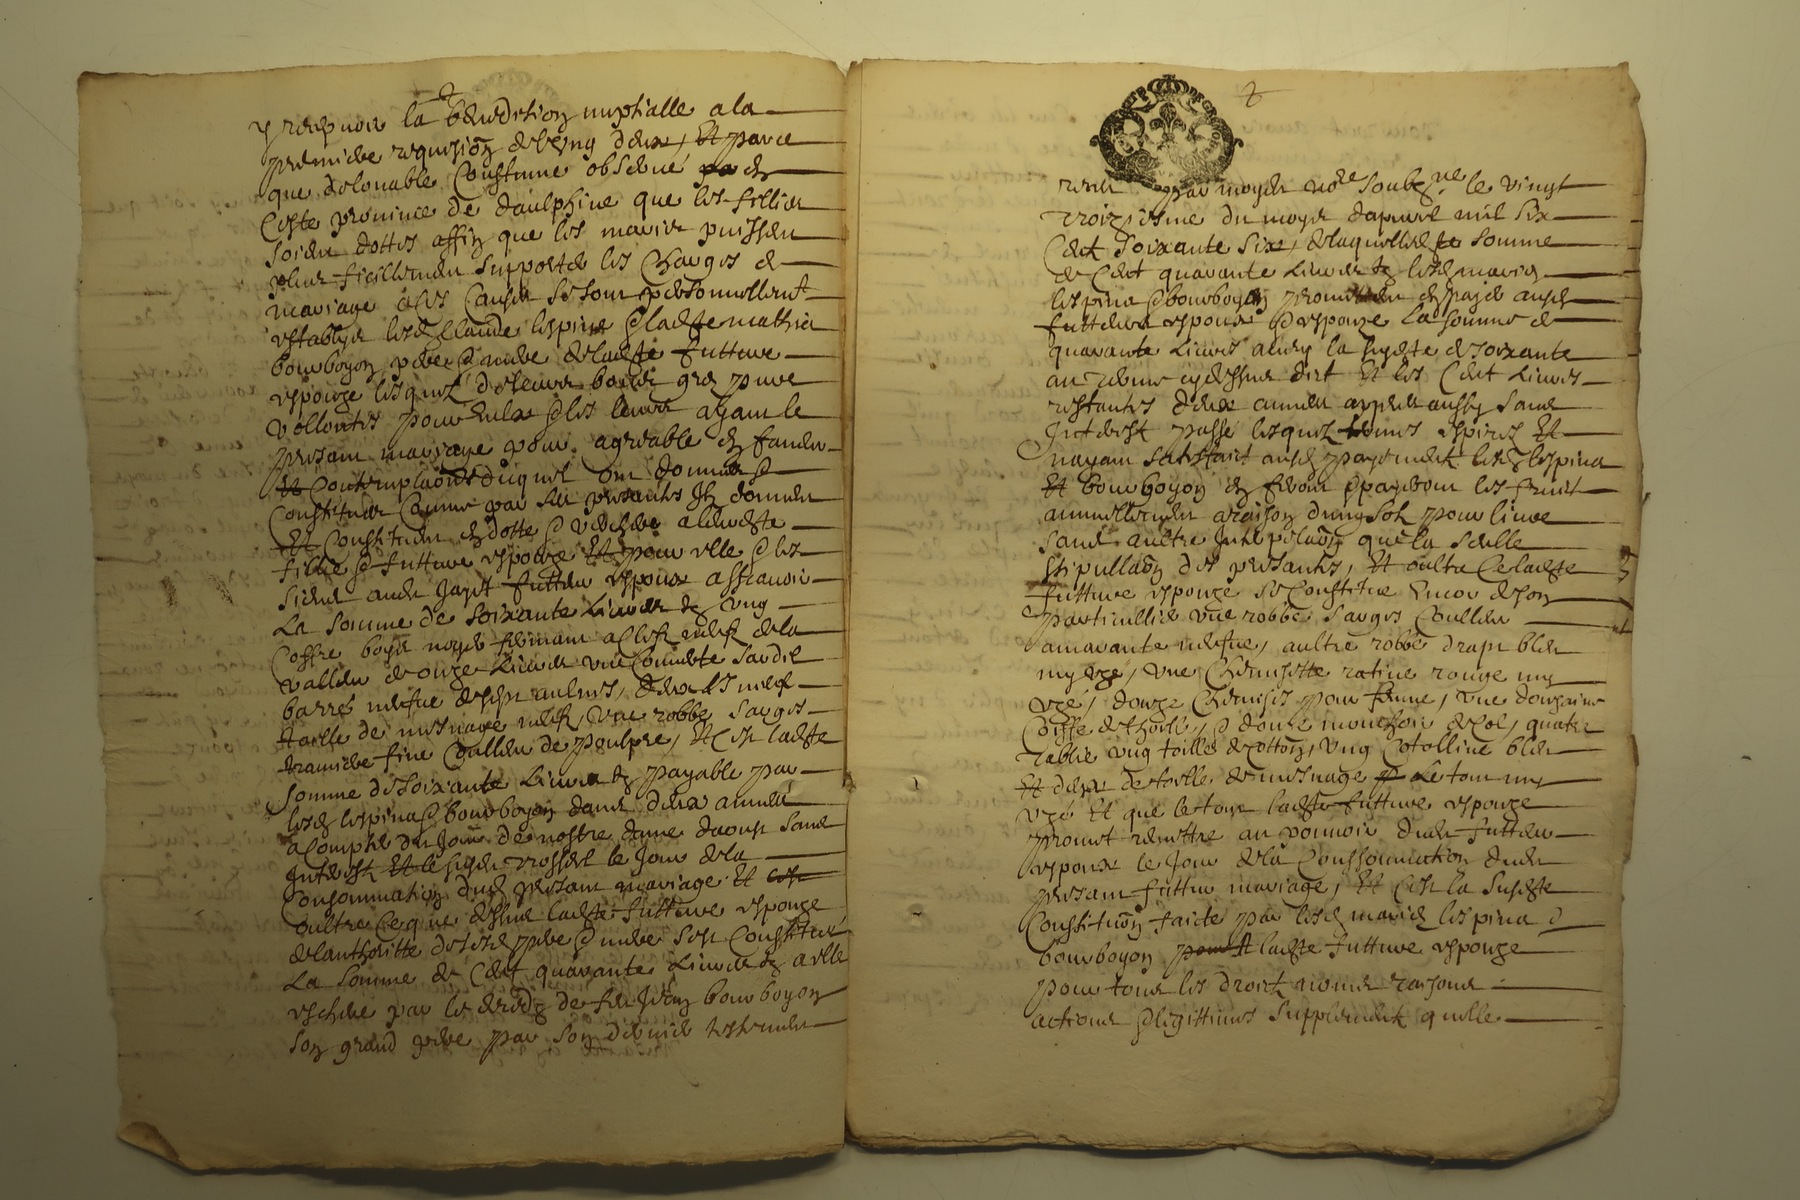 2
y recepvoir la benediction nuptialle a la
premiere requisiõn de lung deux, Et parce
que de louable Coustume observé en
Ceste province de daulphine que les filles
soient dottes affin que les maries puissent
plus facillement supporter les Charges de
mariage a Ces Causes se sont personnellemt
establys lesd Claude lespina & ladte mathia
bourboyon pere & mere de ladte futture
espouze lesquelz de leurs bon gre pure
vollontes pour eulx & les leurs ayant le
present mariage pour agreable En faveur
Et Contemplaõn dicquel ont donne &
Constitue Comme par ses presants Ilz donnent
Et Constituent En dotte & verchere a leurdte
fillie & futture espouze Et pour elle & les
siens aud Jayet futteur espoux assavoir
La somme de soixante Livres tz ung
Coffre boys noyer fermant a Clef neuf de la
valleur de onze Livres une Couverte sardis
barré neufve de sept aulnes, deux
toille de mesnage neufz, une robbe sarges
fine Coulleur de poulpre, Et Cest ladte
somme de soixante Livres tz payable par
lesd lespina & bourboyon dans deux annes
a Compter du Jour de nostre dame daoust sans
Interest Et le susd trossel le Jour de la
Consommation dud present mariage Et
oultre Ce que dessus ladte futture espouze
de lauthoritte desesd pere & mere sest Constitué
La somme de Cent quarante Livres tz a elle
escheue par le deceds de feu Jean bourboyon
son grand pere par son dernier testement
2
receu par moyer nore soubzne le vingt
troiziesme du moys dapvril mil six
Cent soixante six, de laquelle somme
de Cent quarante Livres tz lesd maries
lespina & bourboyon promettent En payer ausd
futteurs espoux & espouze La somme de
quarante Livres avec la susdte de soixante
au terme cy dessus dict Et les Cent Livres
restantes deux annees appres aussy sans
Interest passe lesquelz termes espires Et
nayant satisfaict ausd payements lesd lespina
Et bourboyon En feront & payeront les fruits
annuellement a raison dung solz pour livre
sans aultre Interpelaõn que la seulle
stipullaõn des presants, Et oultre Ce ladte
futture espouze se Constitue Encor de son
particullier une robbe sarges Coulleur
amarante neufve, aultre robbe drapt bleu
my uzé, une Chemisette ratine rouge my
uzé, douze Chemises pour femme, une douzaine
Coiffe de thoille, & douze mouchoir de Col, quatre
tablie ung toille de Cotton, ung Cotolline bleu
Et deux de toille de mesnage Le tout my
uzé Et que le tout ladte futture espouze
promet remettre au pouvoir dud futteur
espoux le Jour de la Conssommation dud
present futtur mariage, Et Cest la susdte
Constituõn faicte par lesd maries lespina &
bourboyon A ladte futture espouze
pour tous les droitz noms raisons
actions & legittimes supplements quelle